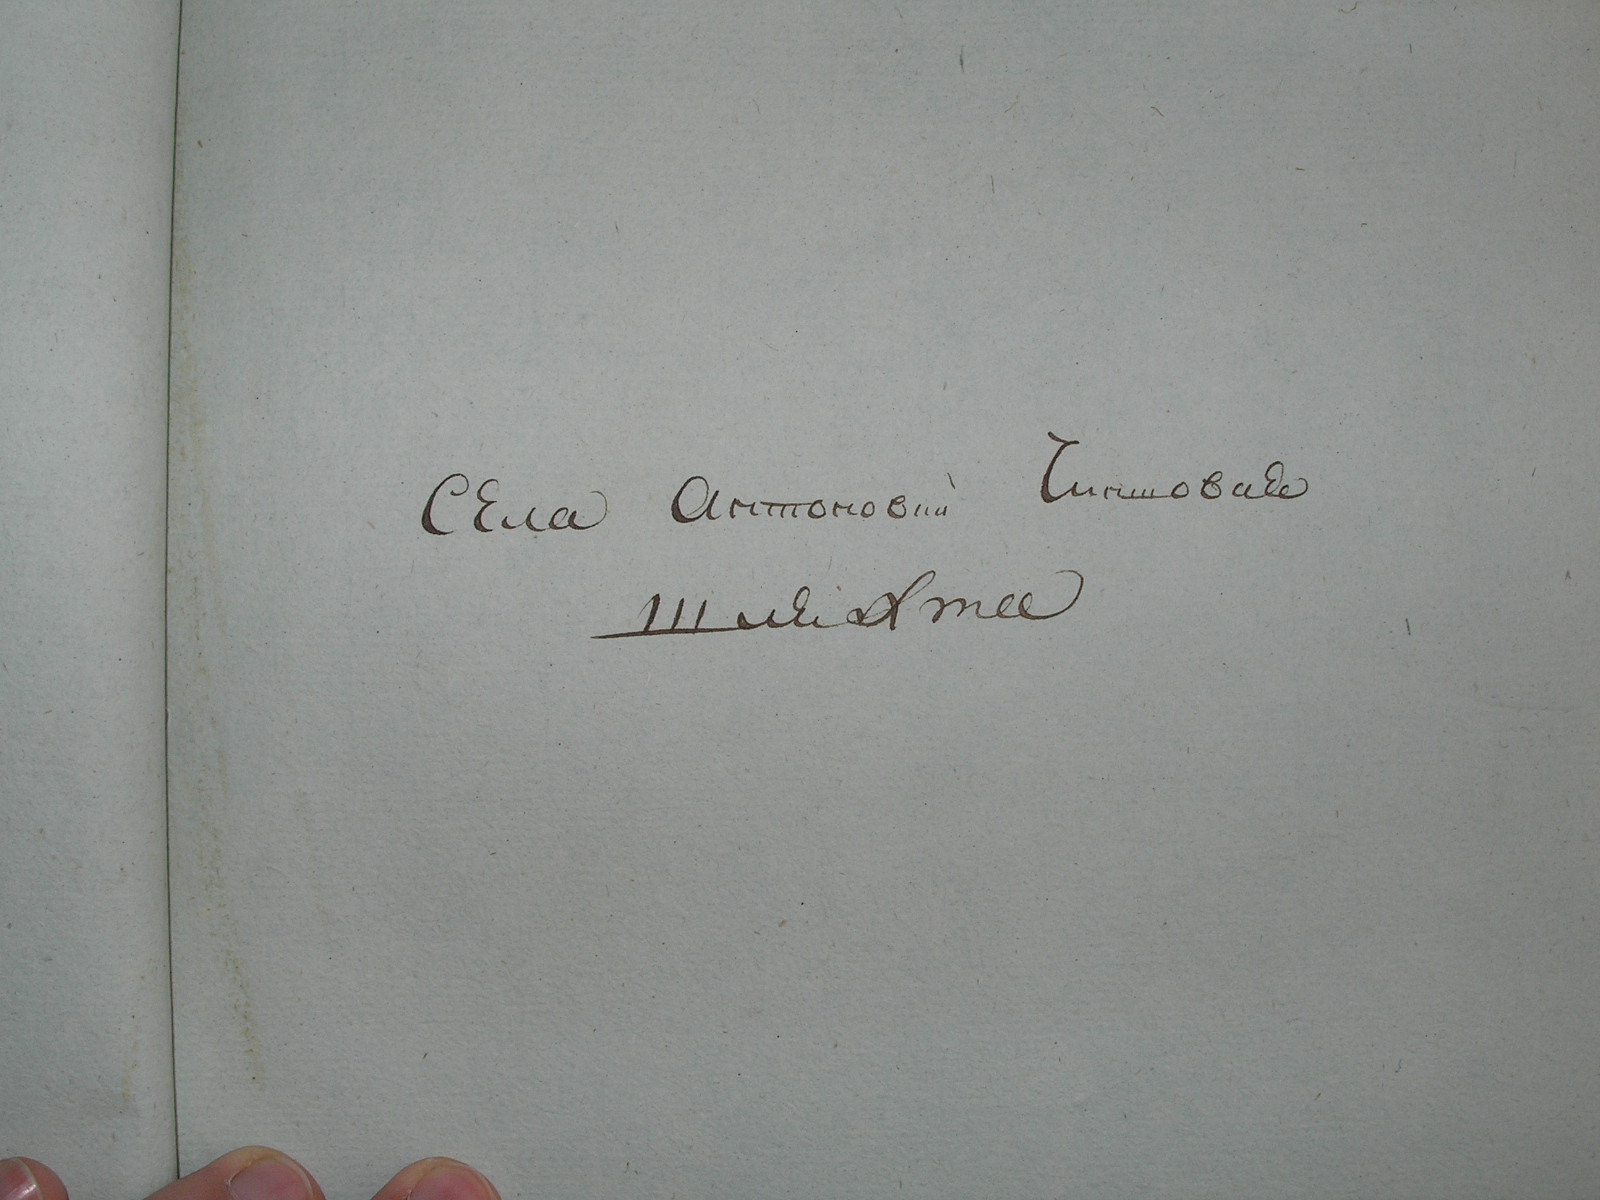 Села Антоновки Чиншовая
Шляхта